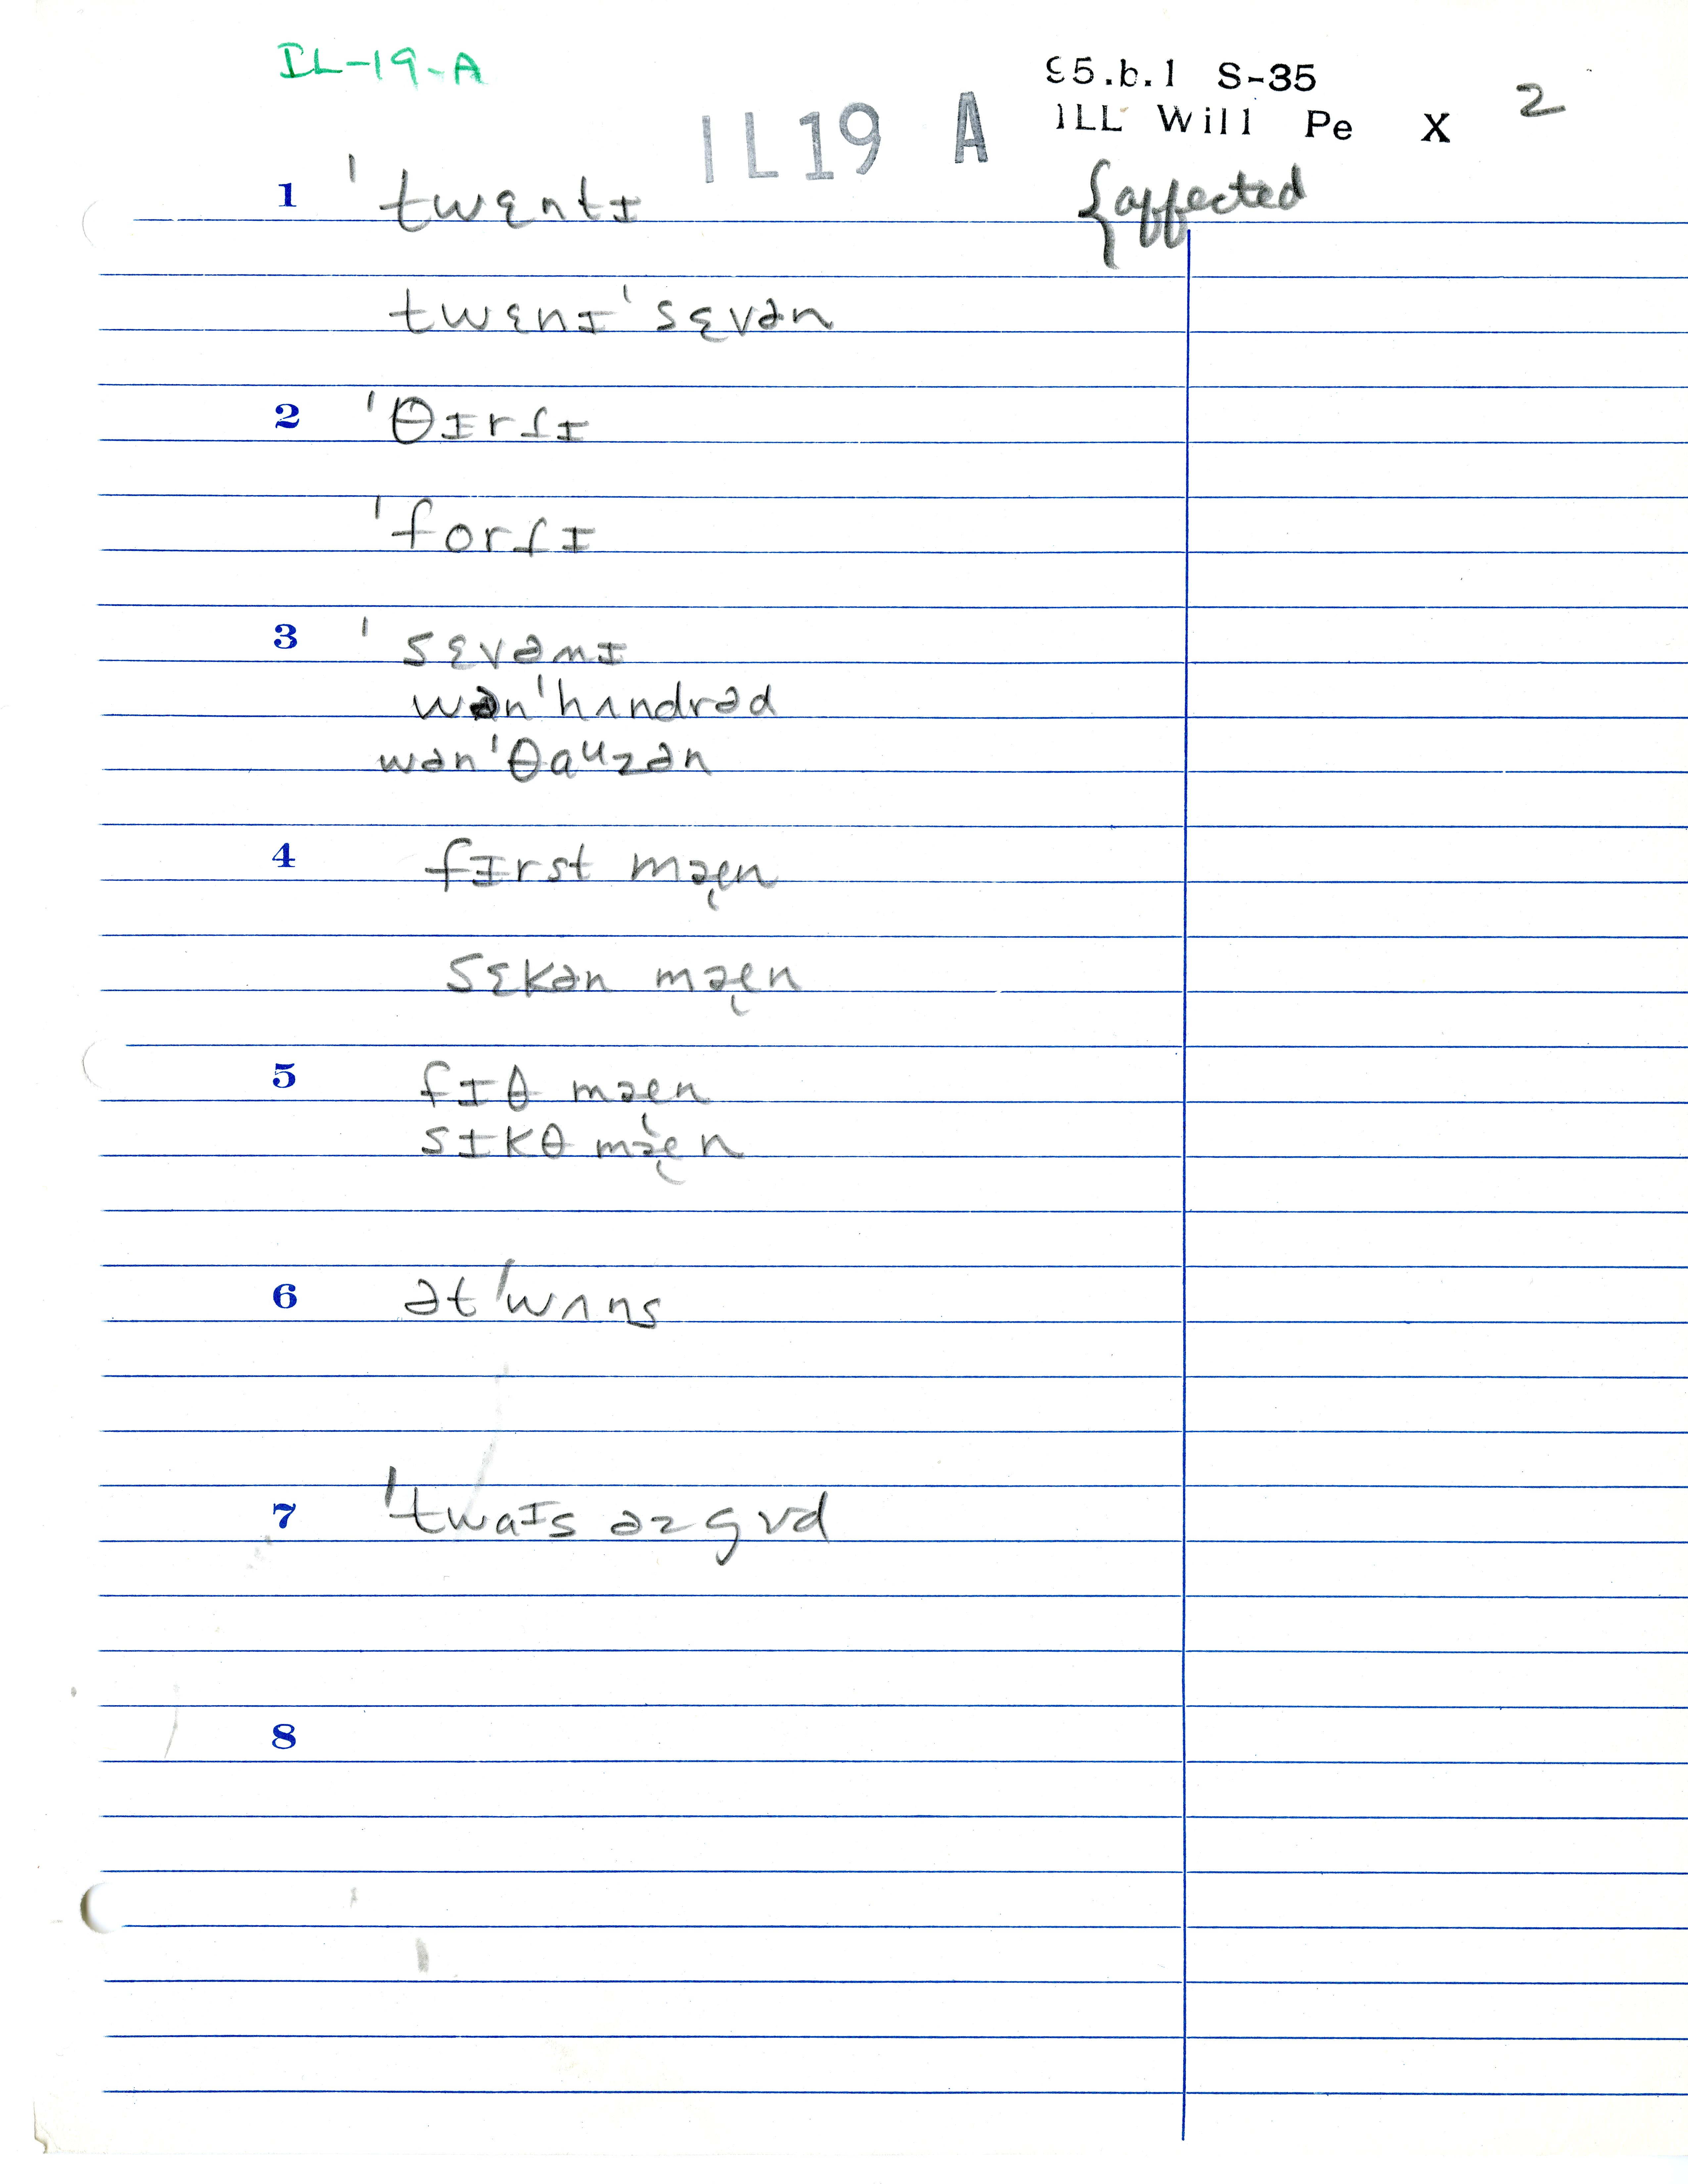 IL-19-A
95.b.1 S-35
ILL Will Pe X 2
IL19 A
1 ˈtwɛntɪ {affected
twɛnɪˈsɛvən
2 ˈθɪrſɪ
ˈforſɪ
3 ˈsɛvəmɪ
wənˈhʌndrəd
wənˈθaᴜzən
4 fɪrst mæ̨n
sɛkən mæ̨n
5 fɪθ mæn
sɪkθ mæ̨n
6 ətˈwʌns
7 ˈtwaɪs əz gᴠd
8